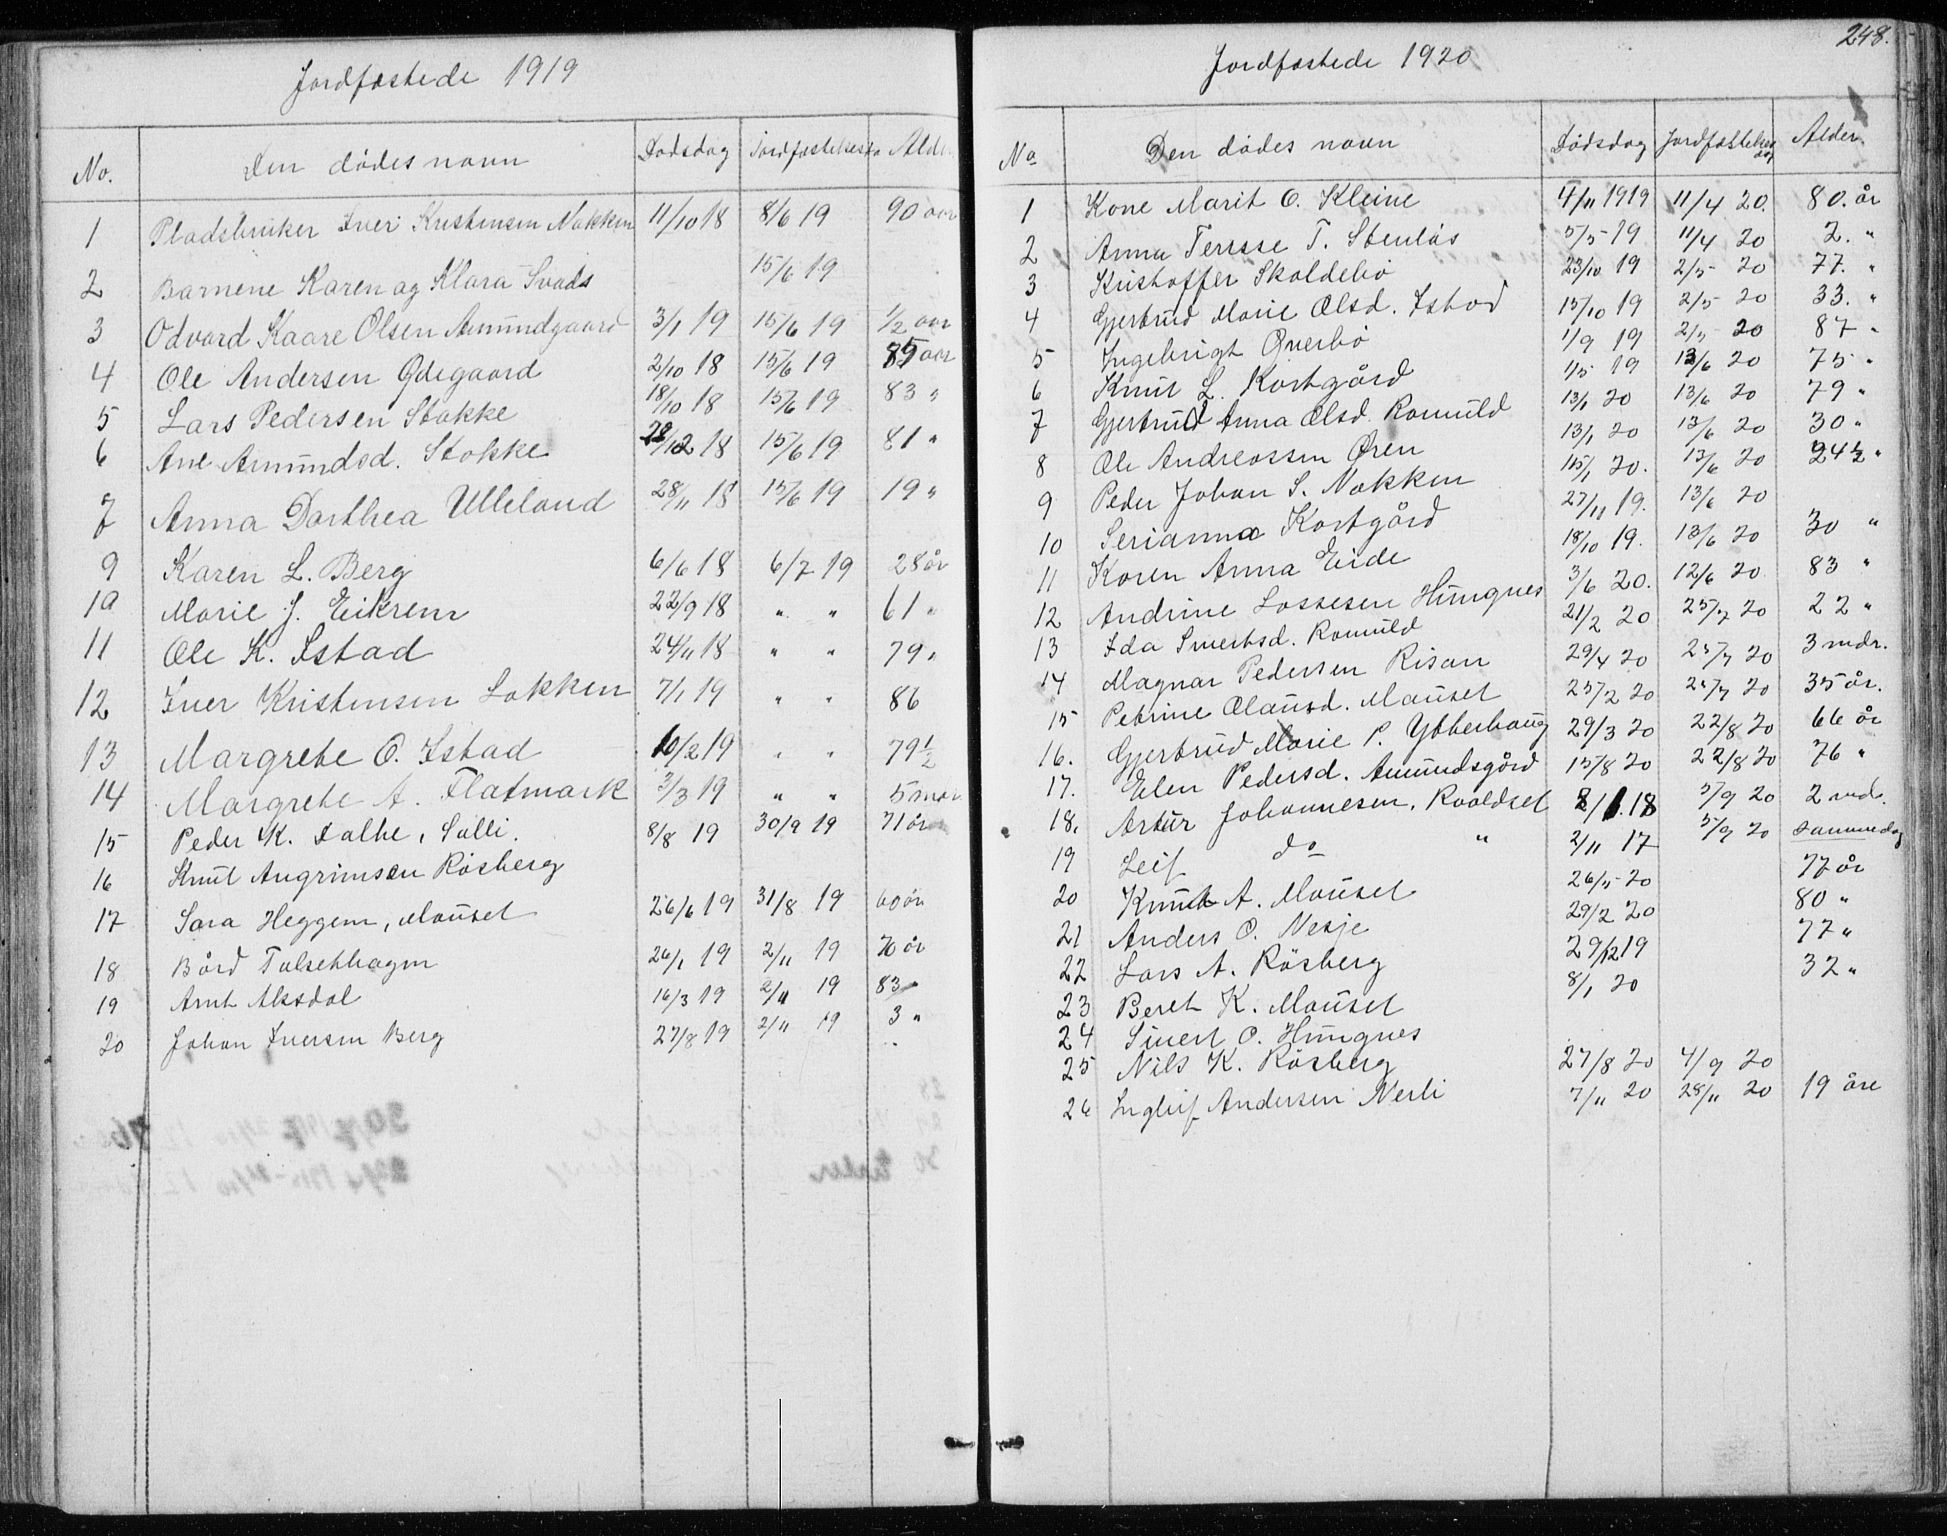 Jordfæstede 1919
No. Den dödes navn Dödsdag Jordfæstelsesda Alder
1 Pladsbruker Iver Kristensen Nakken 11/10 18 8/6 19 90 aar
2 Barnene Karen og Klara Svads 15/6 19
3 Odvard Kaare Olsen Amundgaard 3/1 19 15/6 19 1/2 aar
4 Ole Andersen Ødegaard 2/10 18 15/6 19 85 aar
5 Lars Pedersen Stokke 18/10 18 15/6 19 83 "
6 Ane Amundsd. Stokke 28/12 18 15/6 19 81 "
7 Anna Dorthea Ulleland 28/11 18 15/6 19 19 "
9 Karen L. Berg 6/6 18 6/7 19 28 år
10 Marie J. Eikrem 22/9 18 " " 61 "
11 Ole K. Istad 24/11 18 " " 79 "
12 Iver Kristensen Løkken 7/1 19 " " 86
13 Margrete O. Istad 10/2 19 " " 79 1/2
14 Margrete A. Flatmark 3/3 19 " " 5 mdr
15 Peder K. Dalhe, Sølli. 8/8 19 30/9 19 71 år
16 Knut Angrimsen Røsberg
17 Sara Heggem, Mauset 26/6 19 31/8 19 60 år
18 Bård Talsethhagen 26/1 19 2/11 19 70 år
19 Arnt Aksdal 16/3 19 2/11 19 83 "
20 Johan Iversen Berg 27/8 19 2/11 19 3 "
248.
Jordfæstede 1920
No Den dödes navn Dödsdag Jordfæstelses dag Alder.
1 Kone Marit O. Kleive 4/11 1919 11/4 20. 80. år
2 Anna Teresse T. Stenløs 5/5 19 11/4 20 2. "
3 Kristoffer Skoldebö 23/10 19 2/5 20 77. "
4 Gjertrud Marie Olsd. Istad 15/10 19 2/5 20 33. "
5 Ingebrigt Øverbö 1/9 19 2/5 20 87 "
6 Knut L. Kortgård 1/5 19 13/6 20 75 "
7 Gjertrud Anna Olsd. Romuld 13/1 20 13/6 20 79 "
8 Ole Andreassen Øren 13/1 20 13/6 20 30 "
9 Peder Johan S. Nakken 15/1 20. 13/6 20 24 1/2 "
10 Serianna Kortgård 27/11 19. 13/6 20
11 Karen Anna Eide 18/10 19. 13/6 20 30 "
12 Andrine Lassesen Hungnes 3/6 20. 12/6 20 83 "
13 Ida Sivertsd. Romuld 21/2 20 25/7 20 22 "
14 Magnar Pedersen Risan 29/4 20 25/7 20 3 mdr.
15 Petrine Olausd. Mauset 25/2 20 25/7 20 35 år.
16. Gjertrud Marie P. Ytterhaug 29/3 20 22/8 20 66 år
17. Elen Pedersd. Amundsgård 15/8 20 22/8 20 76 "
18. Artur Johannesen, Roaldset 8/1.18 5/9 20 2 md.
19 Leif do " 2/11 17 5/9 20 sammedag
20 Knut A. Mauset 26/5 20 77 år
21 Anders O. Nesje 29/2 20 80 "
22 Lars A. Røsberg 29/12 19 77 "
23 Beret K. Mauset 8/1 20 32 "
24 Sivert O. Hungnes
25 Nils K. Røsberg 27/8 20 4/9 20
26 Ingleif Andersen Nerli 7/11 20 28/11 20 19 åre